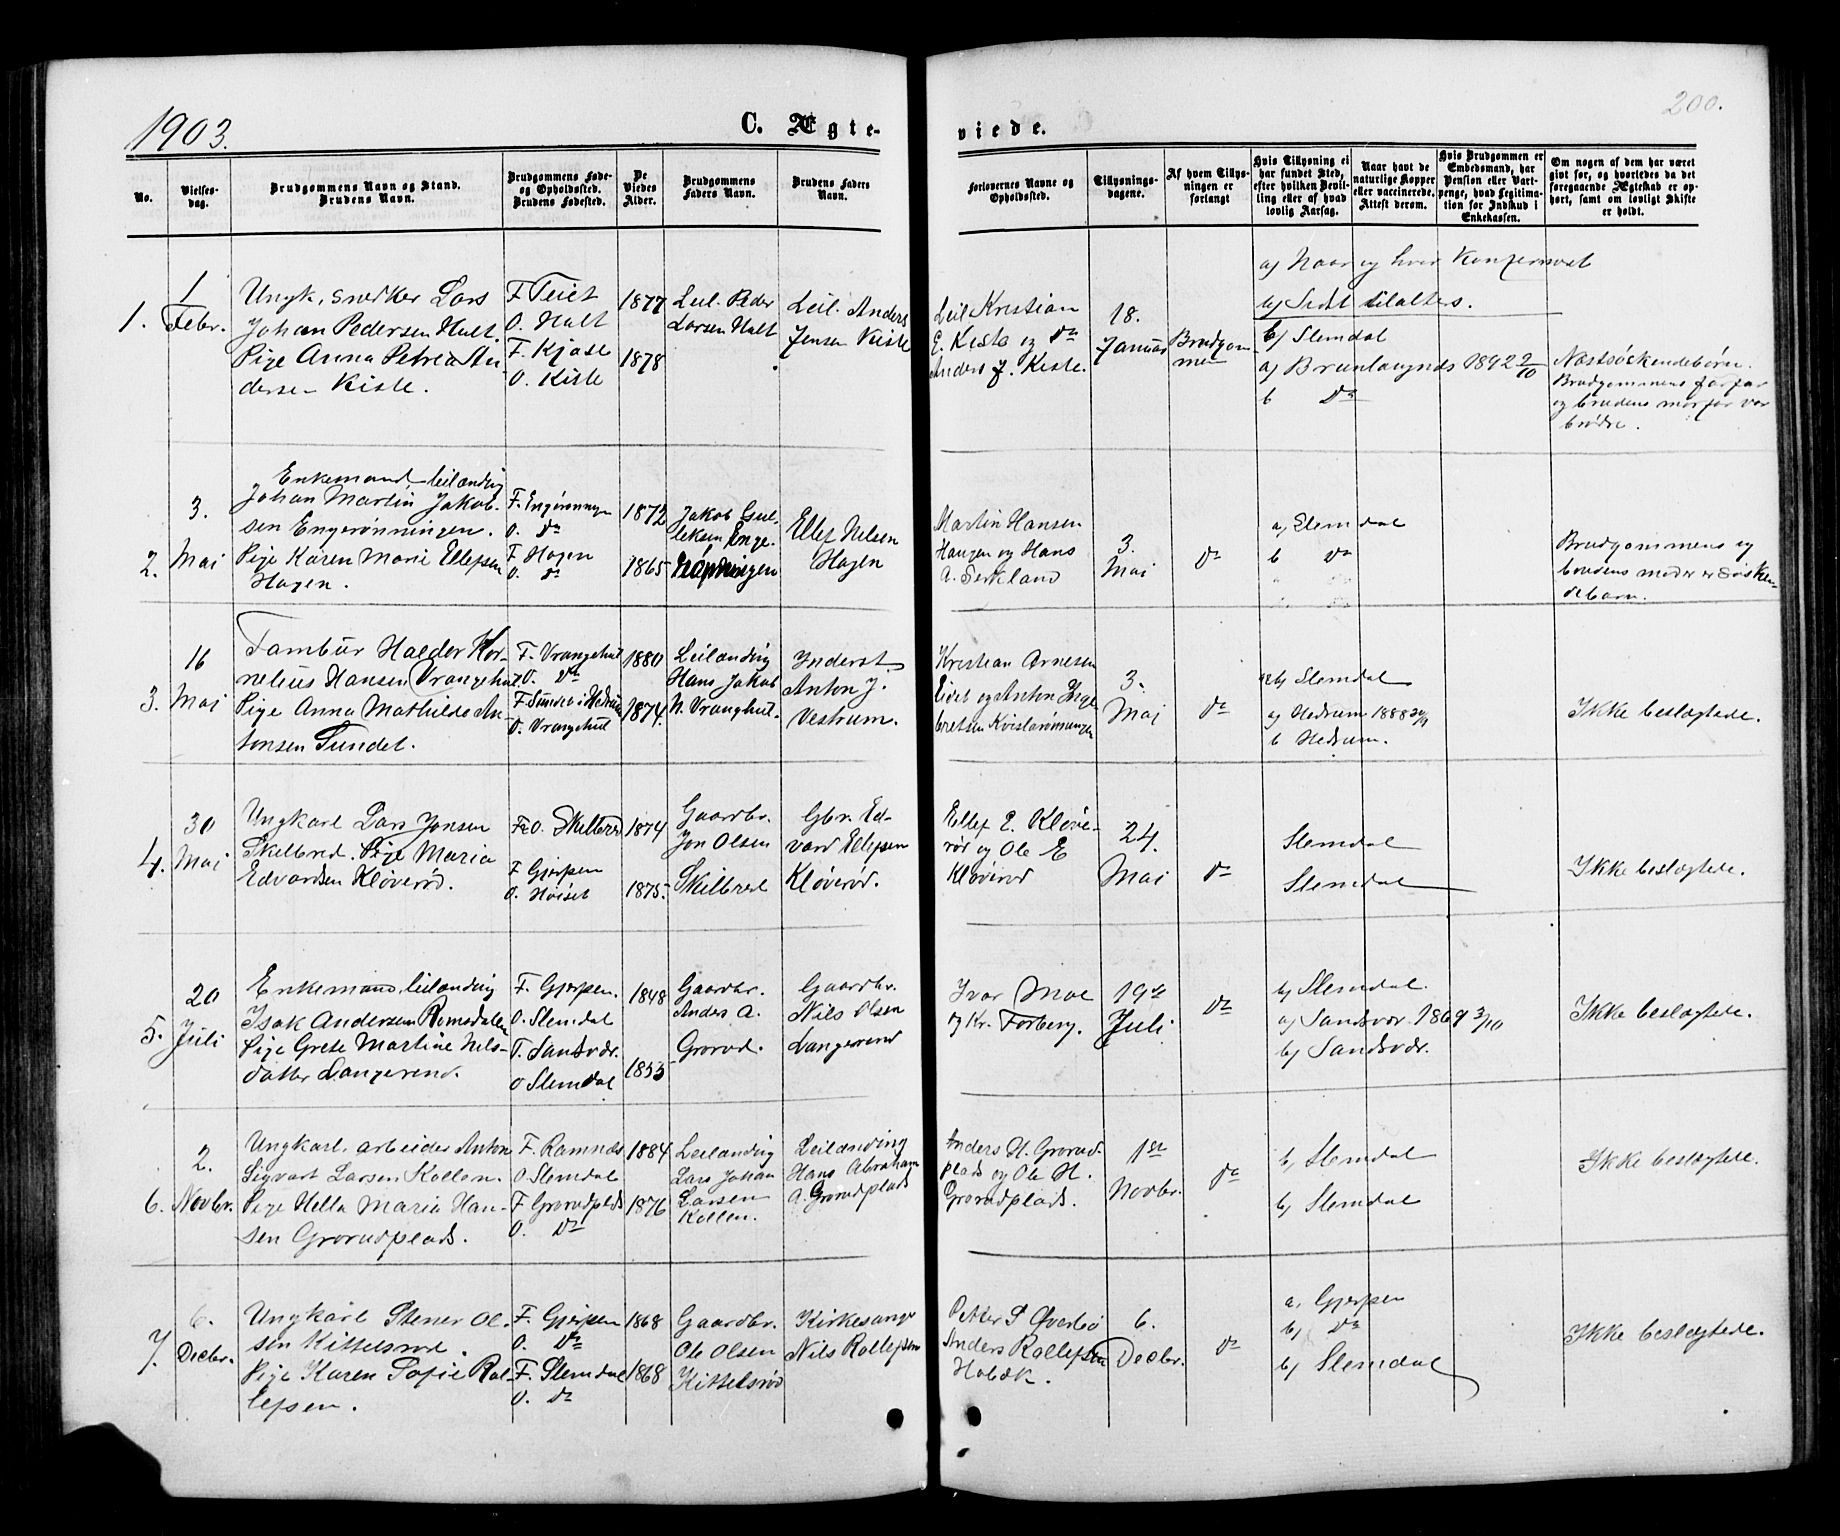 1903.
C. Ægte-
viede.
200.
No.
Vielses-
dag.
Brudgommens Navn og Stand.
Brudens Navn.
Brudgommens Føde-
og Opholdssted.
Brudens Fødested.
De
Viedes
Alder.
Brudgommens
Faders Navn.
Brudens Faders
Navn.
Forlovernes Navne og
Opholdssted.
Tillysnings-
dagene.
Af hvem Tillys-
ningen er
forlangt
Hvis Tillysning ei
har fundet Sted,
efter hvilken Bevil-
ling eller af hvad
lovlig Aarsag.
Naar havt de
naturlige Kopper
eller vaccinerede.
Attest derom.
Hvis Brudgommen er
Embedsmand, har
Pension eller Vart-
penge, hvad Legitima-
tion for Indskud i
Enkekassen.
Om nogen af dem har været
givt før, og hvorledes da det
foregaaende Ægteskab er op-
hørt, samt om lovligt Skifte
er holdt.
a) Naar og hvor Konfirmeret
b) Sidst tilalters.
1.
1
Febr.
Ungk., snedker Lars
Johan Pedersen Halt.
Pige Anna Petrea An-
dersen Kiste.
F. Teiet
O. Halt
F. Kjose
O. Kiste
1877
1878
Leil. Peder
Larsen Halt
Leil. Anders
Jensen Kiste
Leil Kristian
E. Kiste og Do
Anders J. Kiste.
18.
Januar
Brudgom
men
b) Slemdal
a) Brunlangnæs 1892 2/10
b Do
Næstsøskendebørn.
Brudgommens farfar
og brudens morfar var
brødre.
2.
3.
Mai
Enkemand leilænding
Johan Martin Jakob-
sen Engerønningen.
Pige Karen Marie Ellefsen
Hagen.
F. Engerønningen
O. Do
F Hagen
O. Do
1872
1865
Jakob Gul-
leksen Enge-
rønningen
Ellef Nilsen
Hagen
Martin Hansen
Haugen og Hans
A. Serkland
3.
Mai
Do
a) Slemdal
b Do
Brudgommens og
brudens moder er Søsken-
debarn.
3.
16
Mai
Tambur Haldor Kor-
nelius Hansen Vrangehul
Pige Anna Mathilde An-
tonsen Sundet.
F. Vrangehul
O. Do
F. Sundet i Hedrum
O. Vrangehul
1880
1874.
Leilænding
Hans Jakob
N. Vranghul.
Inderst.
Anton J.
Vestrum.
Kristian Arnesen
Eidet og Anton Inge
bretsen Kvislerønningen
3.
Mai
Do
b) Slemdal
a) Hedrum 1888
b Hedrum.
Ikke beslægtede.
4.
30
Mai
Ungkarl Lars Jonsen
Skilbred. Pige Maria
Edvardsen Kløverød.
F. O. Skilbred
F Gjerpen
O. Høiset
1874
1875.
Gaardbr.
Jon Olsen
Skilbred
Gbr. Ed-
vard Ellefsen
Kløverød.
Ellef E. Kløve-
rød og Ole E
Kløverød
24.
Mai
Do
Slemdal
Slemdal
Ikke beslægtede.
5.
20
Juli
Enkemand, leilænding
Isak Andersen Romsdalen
Pige Grete Martine Nils-
datter Langerend.
F. Gjerpen.
O. Slemdal
F. Sandsvær.
O Slemdal
1848
1853
Gaardbr.
Anders A.
Grorud.
Gaardbr.
Nils Olsen
Langerend
Ivar Moe
og Kr. Forberg.
19de
Juli
Do
b) Slemdal.
a) Sandsvær 1869 3/10
b) Sandsvær.
Ikke beslægtede.
6.
2.
Novbr.
Ungkarl, arbeider Anton
Sigvart Larsen Kollen.
Pige Hella Maria Han-
sen Grorudplads.
F. Ramnæs
O Slemdal
F. Grorudplads
O. Do
1884
1876
Leilænding
Lars Johan
Larsen
Kollen.
Leilænding
Hans Abraham
A. Grorudplads
Anders H. Grorud-
plads og Ole H.
Grorudplads.
1ste
Novbr.
Do
b) Slemdal
b) Slemdal
Ikke beslægtede.
7.
6.
Decbr.
Ungkarl Stener Ol-
sen Kittelsrød.
Pige Karen Sofie Rol-
lefsen.
F. Gjerpen
O. Do
F. Slemdal
O. Do
1868
1868
Gaardbr.
Ole Olsen
Kittelsrød
Kirkesanger
Nils Rollefsen
Petter S Øverbø
Anders Rollefsen
Holtæk.
6.
Decbr.
Do
a. Gjerpen
b) Do
b) Slemdal
Ikke beslægtede.